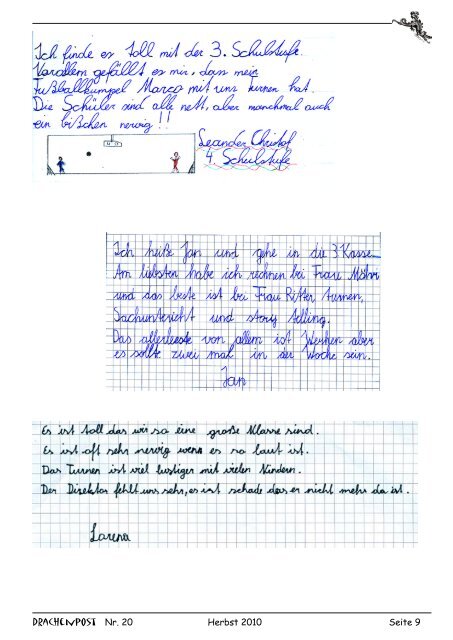 Ich finde es toll mit der 3. Schulstufe.
Vorallem gefällt es mir, dass mein
Fußballkumpel Marco mit uns turnen hat.
Die Schüler sind alle nett, aber manchmal auch
ein bißchen nervig!!
Leander Christof
4. Schulstufe
Ich heiße Jan und gehe in die 3 Kasse.
Am liebsten habe ich rechnen bei Frau Möhr
und das beste ist bei Frau Ritter turnen,
Sachunterricht und story telling.
Das allerbeste von allem ist Werken aber
es sollte zwei mal in der Woche sein.
Jan
Es ist toll das wir so eine große Klasse sind.
Es ist oft sehr nervig wenn es so laut ist.
Das Turnen ist viel lustiger mit vielen Kindern.
Der Direktor fehlt uns sehr, es ist schade das er nicht mehr da ist.
Larena
DRACHENPOST Nr. 20 Herbst 2010 Seite 9